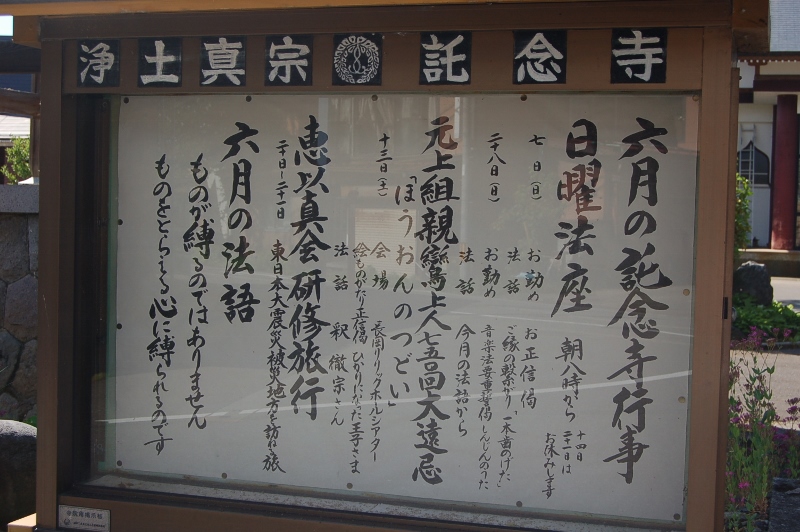 浄土真宗 託念寺
六月の託念寺行事
日曜法座 朝八時から
十四日
二十一日は
お休みします
七日(日) お勤め お正信偈
法話 ご縁の繋がり 一本歯のげた
二十八日(日) お勤め 音楽法要重誓偈 しんじんのうた
法話 今月の法話から
元上組親鸞上人七五〇回大遠忌
「ほうおんのつどい」
十三日(土) 会場 長岡リリックホルシアター
絵ものがたり正信偈 ひかりになった王子さま
法話 釈徹宗さん
恵以真会研修旅行
二十日~二十一日 東日本大震災被災地方を訪ねる旅
六月の法語
ものが縛るのではありません
ものをとらえる心に縛られるのです